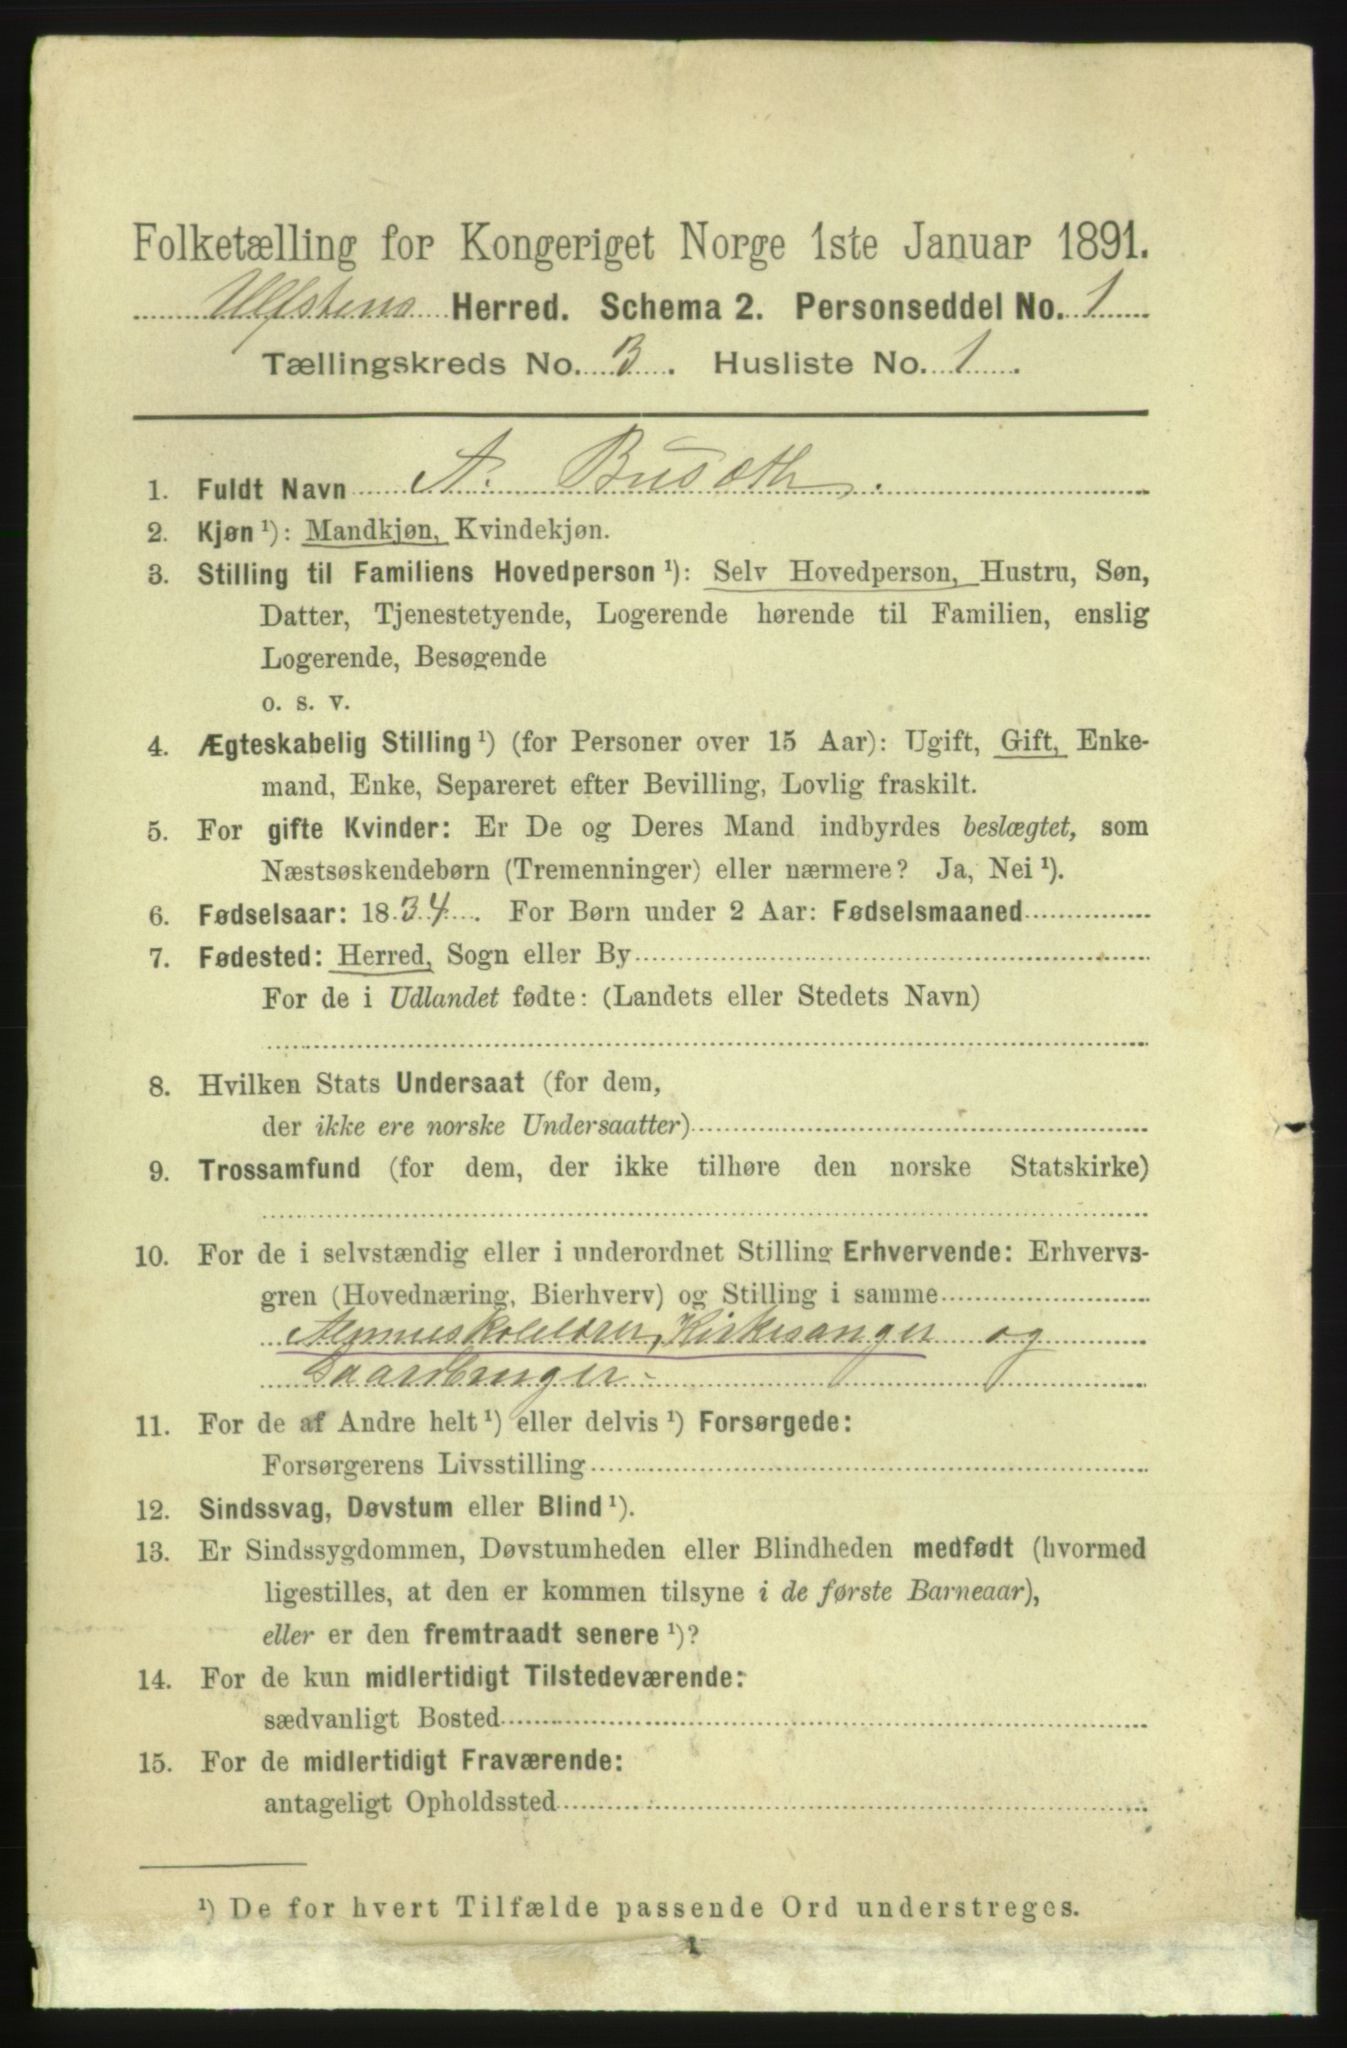 Folketælling for Kongeriget Norge 1ste Januar 1891.
Ulfstens Herred. Schema 2. Personseddel No. 1
Tællingskreds No. 3. Husliste No. 1.
1. Fuldt Navn A. Busæth.
2. Kjøn ¹): Mandkjøn, Kvindekjøn.
3. Stilling til Familiens Hovedperson ¹): Selv Hovedperson, Hustru, Søn,
Datter, Tjenestetyende, Logerende hørende til Familien, enslig
Logerende, Besøgende
o. s. v.
4. Ægteskabelig Stilling ¹) (for Personer over 15 Aar): Ugift, Gift, Enke-
mand, Enke, Separeret efter Bevilling, Lovlig fraskilt.
5. For gifte Kvinder: Er De og Deres Mand indbyrdes beslægtet, som
Næstsøskendebørn (Tremenninger) eller nærmere? Ja, Nei ¹).
6. Fødselsaar: 1834. For Børn under 2 Aar: Fødselsmaaned
7. Fødested: Herred, Sogn eller By
For de i Udlandet fødte: (Landets eller Stedets Navn)
8. Hvilken Stats Undersaat (for dem,
der ikke ere norske Undersaatter)
9. Trossamfund (for dem, der ikke tilhøre den norske Statskirke)
10. For de i selvstændig eller i underordnet Stilling Erhvervende: Erhvervs-
gren (Hovednæring, Bierhverv) og Stilling i samme
Almueskolelærer, Kirkesanger og
Gaardbruger -
11. For de af Andre helt ¹) eller delvis ¹) Forsørgede:
Forsørgerens Livsstilling
12. Sindssvag, Døvstum eller Blind ¹).
13. Er Sindssygdommen, Døvstumheden eller Blindheden medfødt (hvormed
ligestilles, at den er kommen tilsyne i de første Barneaar),
eller er den fremtraadt senere ¹)?
14. For de kun midlertidigt Tilstedeværende:
sædvanligt Bosted
15. For de midlertidigt Fraværende:
antageligt Opholdssted
¹) De for hvert Tilfælde passende Ord understreges.
1